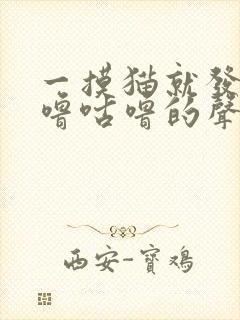 一摸猫就發
噜咕噜的聲
西安-寶鸡